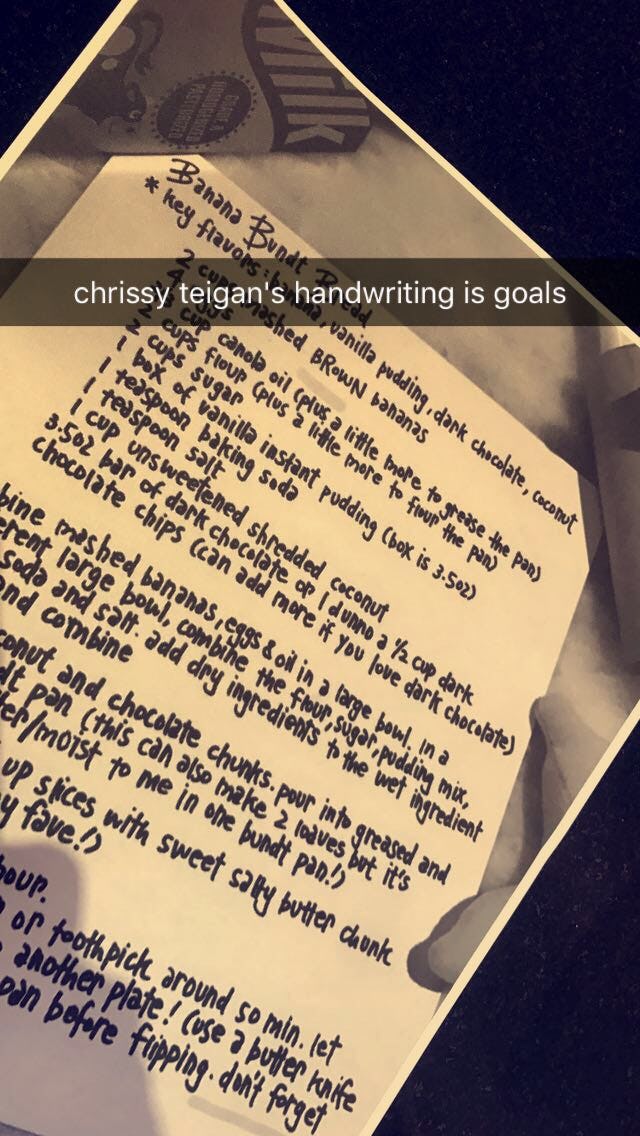 Milk
GRADE A
HOMOGENIZED
PASTEURIZED
Banana Bundt Bread
* key flavors: banana, vanilla pudding, dark chocolate, coconut
chrissy teigan's handwriting is goals
2 cups mashed BROWN bananas
4 eggs
cup canola oil (plus a little more to grease the pan)
2 cups flour (plus a little more to flour the pan)
2 cups sugar
1 box of vanilla instant pudding (box is 3.5oz)
1 teaspoon baking soda
1 teaspoon salt
1 cup unsweetened shredded coconut
3.5oz bar of dark chocolate or I dunno a 1/2 cup dark
chocolate chips (can add more if you love dark chocolate)
bine mashed bananas, eggs & oil in a large bowl. in a
erent large bowl, combine the flour, sugar, pudding mix,
soda and salt. add dry ingredients to the wet ingredient
and combine
conut and chocolate chunks. pour into greased and
dt pan (this can also make 2 loaves but it's
er/moist to me in one bundt pan!)
up slices with sweet salty butter chunk
y fave!)
hour.
or toothpick around 50 min. let
another plate! (use a butter knife
pan before flipping. don't forget